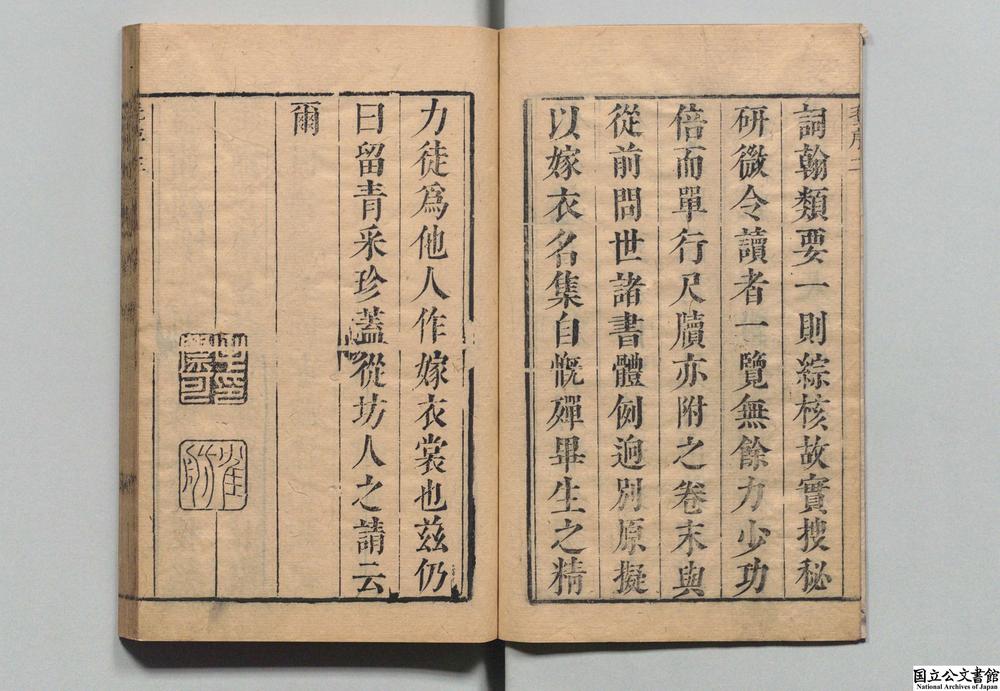 詞翰類要一則綜核故實搜秘
研微令讀者一覽無餘力少功
倍而單行尺牘亦附之卷末與
從前問世諸書體例逈別原擬
以嫁衣名集自慨殫畢生之精
力徒爲他人作嫁衣裳也茲仍
曰留青采珍蓋從坊人之請云
爾
国立公文書館
National Archives of Japan